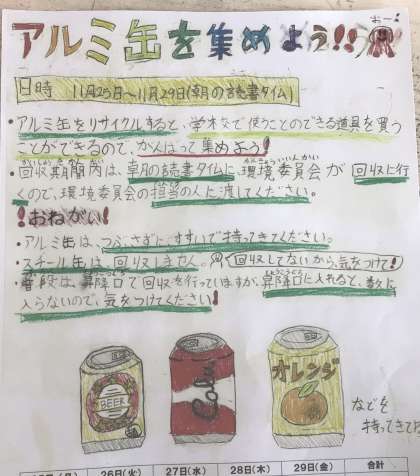 おー!
アルミ缶を集めよう!!
日時 11月25日〜11月29日(朝の読書タイム)
・アルミ缶をリサイクルすると、学校などで使うことのできる道具を買う
ことができるので、がんばって集めよう!
・回収期間内は、朝の読書タイムに環境委員会が回収に行
くので、環境委員会の担当の人に渡してください。
!おねがい!
・アルミ缶は、つぶさずに、すすいで持ってきてください。
・スチール缶は回収しません。 回収してないから気をつけて!
・普段は、昇降口で回収を行っていますが、昇降口に入れると、数に
入らないので、気をつけてください!
BEER
Cola
オレンジ
などを
持ってきてね
26日(火) 27日(水) 28日(木) 29日(金) 合計